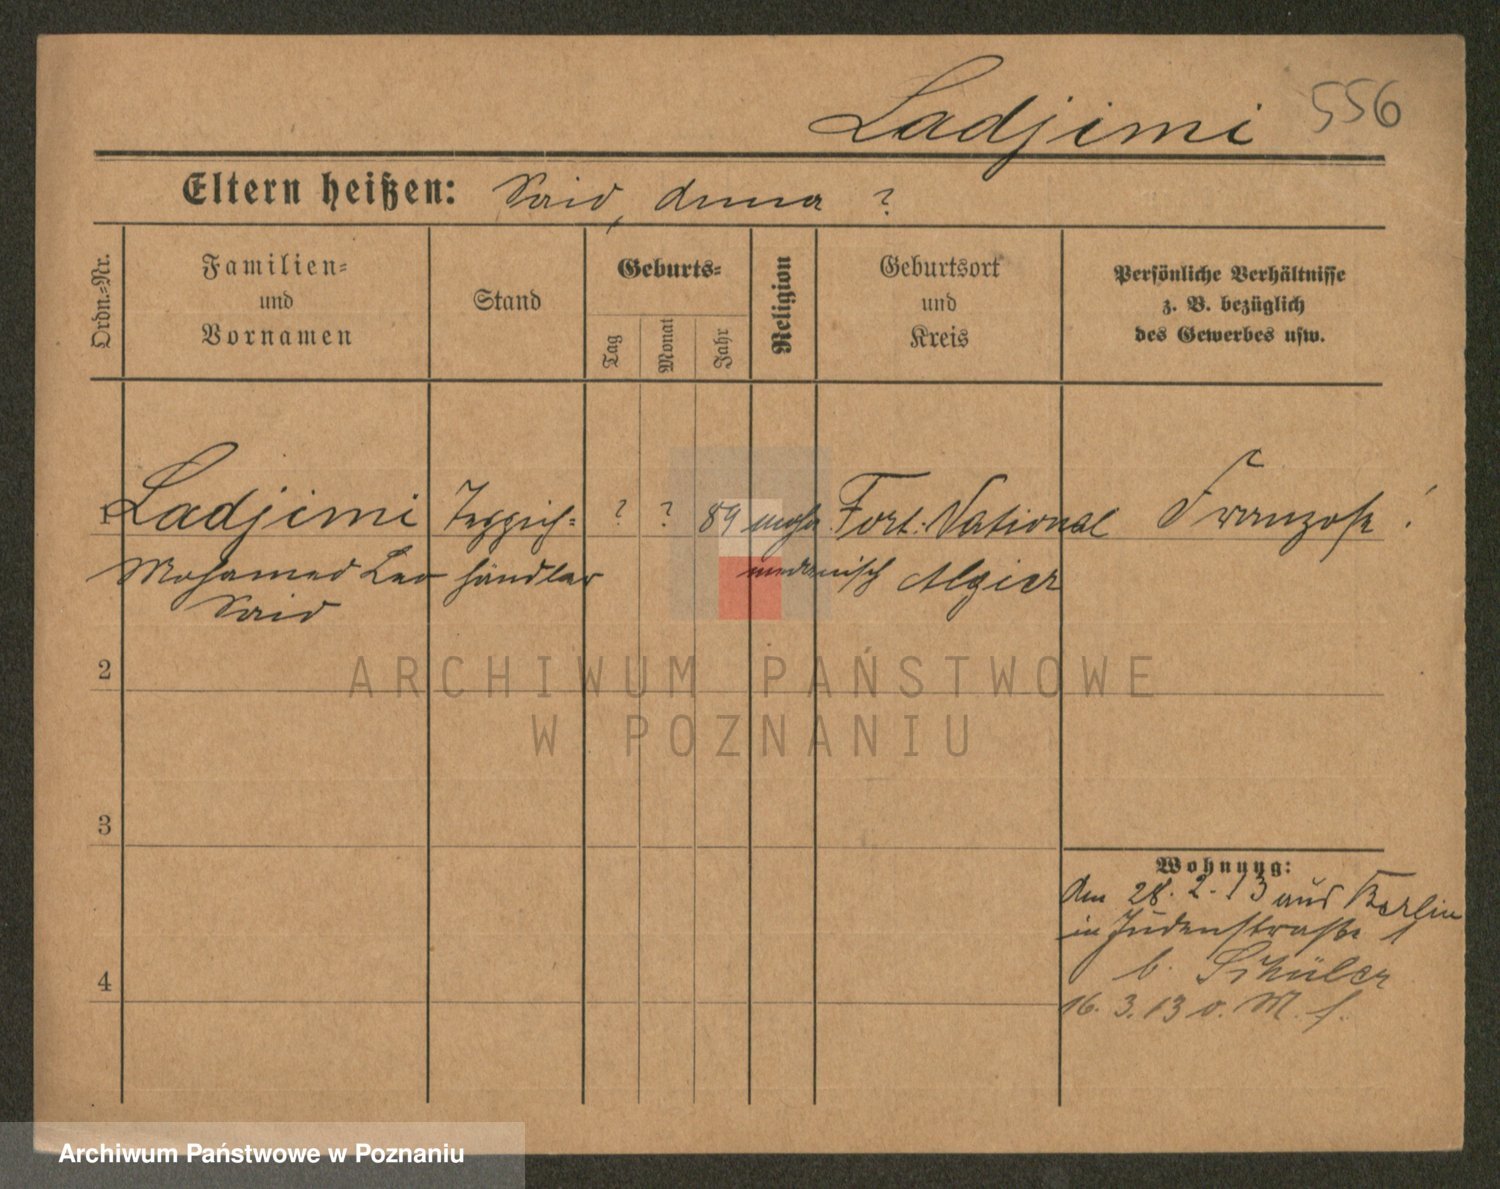 Ladjimi 556
Eltern heißen: Said, Anna ?
Ordn.-Nr.
Familien-
und
Vornamen
Stand
Geburts-
Tag
Monat
Jahr
Religion
Geburtsort
und
Kreis
Persönliche Verhältnisse
z. B. bezüglich
des Gewerbes usw.
1 Ladjimi Teppich- ? ? 89 moha Fort. National Franzose !
Mohamed Ben händler medanisch Algier
Said
2
ARCHIWUM PAŃSTWOWE
W POZNANIU
3
Wohnung:
den 28. 2. 13 aus Berlin
in Judenstraße 1
b. Schüler
4
16. 3. 13 o. M. f.
Archiwum Państwowe w Poznaniu